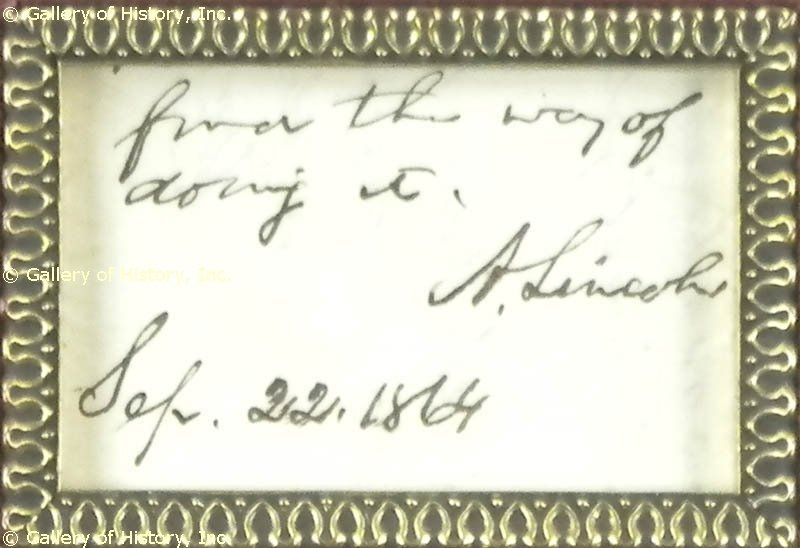 © Gallery of History, Inc.
find the way of
doing it.
© Gallery of History, Inc.
A. Lincoln
Sep. 22. 1864
© Gallery of History, Inc.